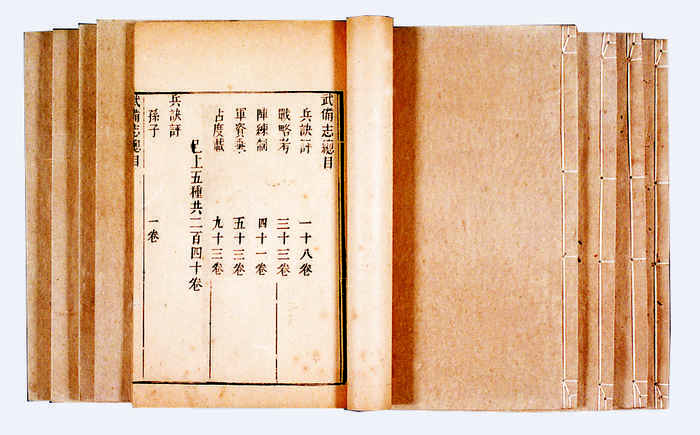 武備志總目
兵訣評 一十八卷
戰略考 三十三卷
陣練制 四十一卷
軍資乗 五十三卷
占度載 九十三卷
已上五種共二百四十卷
兵訣評
孫子 一卷
武備志總目